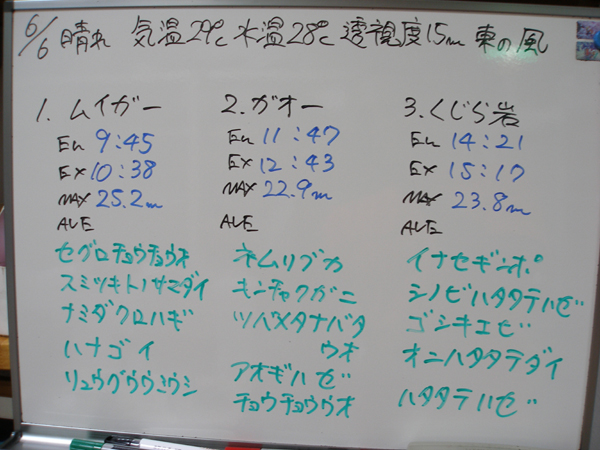 6/6 晴れ 気温29℃ 水温28℃ 透視度15m 東の風
1. ムイガー
En 9:45
EX 10:38
MAX 25.2m
AVE
セグロチョウチョウウオ
スミツキトノサマダイ
ナミダクロハギ
ハナゴイ
リュウグウウミウシ
2. ガオー
En 11:47
EX 12:43
MAX 22.9m
AVE
ネムリブカ
キンチャクガニ
ツバメタナバタ
ウオ
アオギハゼ
チョウチョウウオ
3. くじら岩
En 14:21
EX 15:17
MAX 23.8m
AVE
イナセギンポ
シノビハタタテハゼ
ゴシキエビ
オニハタタテダイ
ハタタテハゼ